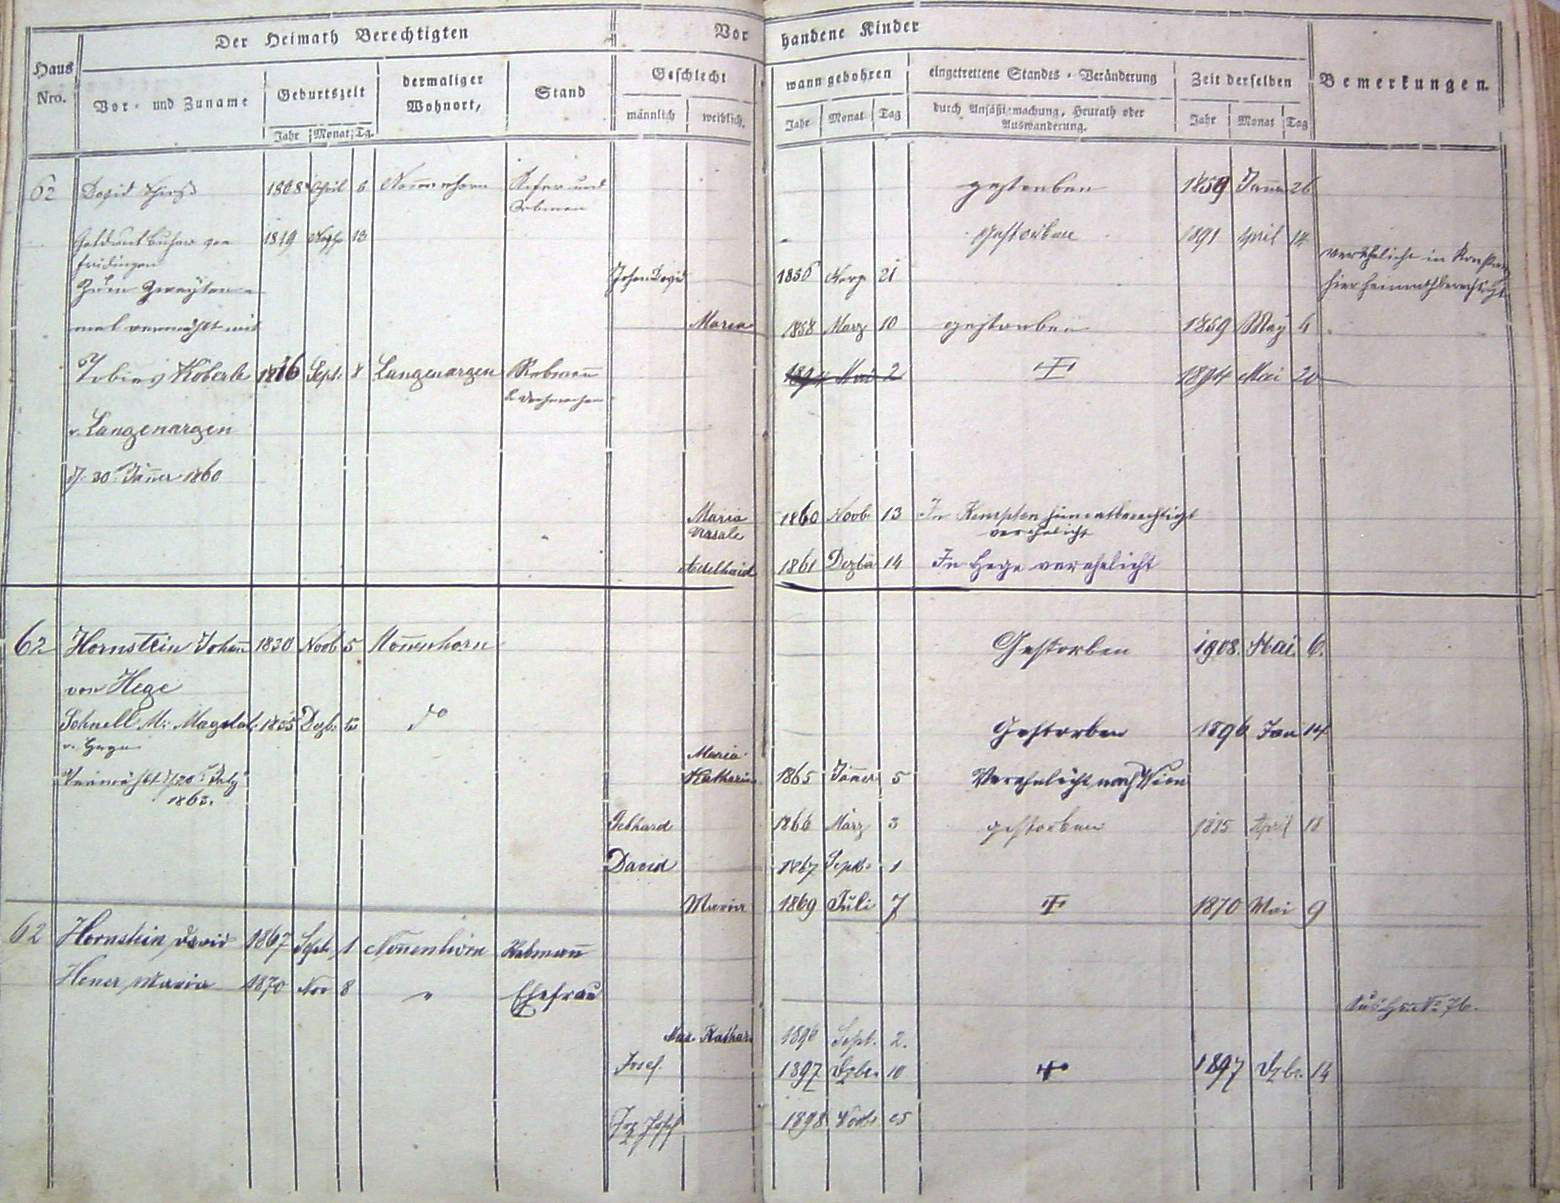 Der Heimath Berechtigten
Vorhandene Kinder
Haus Nro.
Vor- und Zuname
Geburtszeit
Jahr Monat Tg.
dermaliger Wohnort,
Stand
Geschlecht
männlich weiblich.
wann gebohren
Jahr Monat Tag
eingetrettene Standes-Veränderung
durch Ansäßigmachung, Heurath oder
Auswanderung.
Zeit derselben
Jahr Monat Tag
Bemerkungen.
62 David 1808 April 6 Nonnenhorn und gestorben 1859 26
Rebmann
von 1819 13 gestorben 1891 April 14
fridingen verehelicht in
Zum Zweyten- Johan David 1856 21 hier heimathberechtigt
mal vermählt mit Maria 1858 März 10 gestorben 1859 May 4
Tobias Köberle 1816 Sept. 8 Langenargen Rebmann 1894 Mai 2 1894 Mai 20
v. Langenargen
d/. 30. Jänner 1860
Maria 1860 Novb 13 In Kempten heimatberechtigt
verehelicht
Adelhaid 1861 Dezbr 14 In Hege verehelicht
62 Hornstein Johan 1830 Novb 5 Nonnenhorn Gestorben 1908. Mai 6.
von Hege
Schnell M. Magdal. 1835 Dezb. do Gestorben 1896 Jan 14
v. Hege
Maria
Vermählt July Katharina 1865 Jänner 5 Verehelicht nach Wien
1863.
Gebhard 1866 März 3 gestorben 1885 April 18
David 1867 Septbr 1
Maria 1869 Juli 7 1870 Mai 9
62 Hornstein David 1867 Septb. 1 Nonnenhorn Rebmann
Maria 1870 Nov 8 " Ehefrau No 76.
Mar. Kathar. 1896 Sept. 2.
Josef. 1897 Dzbr. 10 1897 Dzbr. 14
Josef 1898